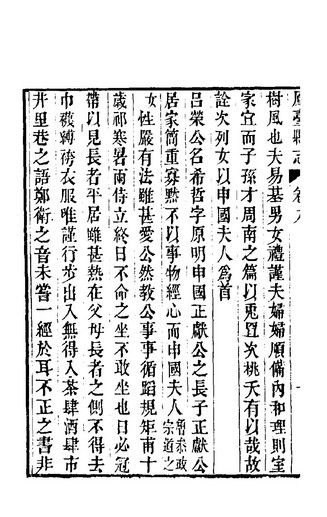 鳳臺縣志 卷八
樹風也夫易基男女禮謹夫婦婦順備內和理則室
家宜而子孫才周南之篇以兎罝次桃夭有以哉故
詮次列女以申國夫人爲首
呂榮公名希哲字原明申國正獻公之長子正獻公
居家簡重寡默不以事物經心而申國夫人魯叅政宗道之
女性嚴有法雖甚愛公然教公事事循蹈規矩甫十
歲祁寒暑雨侍立終日不命之坐不敢坐也日必冠
帶以見長者平居雖甚熱在父母長者之側不得去
巾襪縛袴衣服唯謹行步出入無得入茶肆酒肆市
井里巷之語鄭衛之音未嘗一經於耳不正之書非